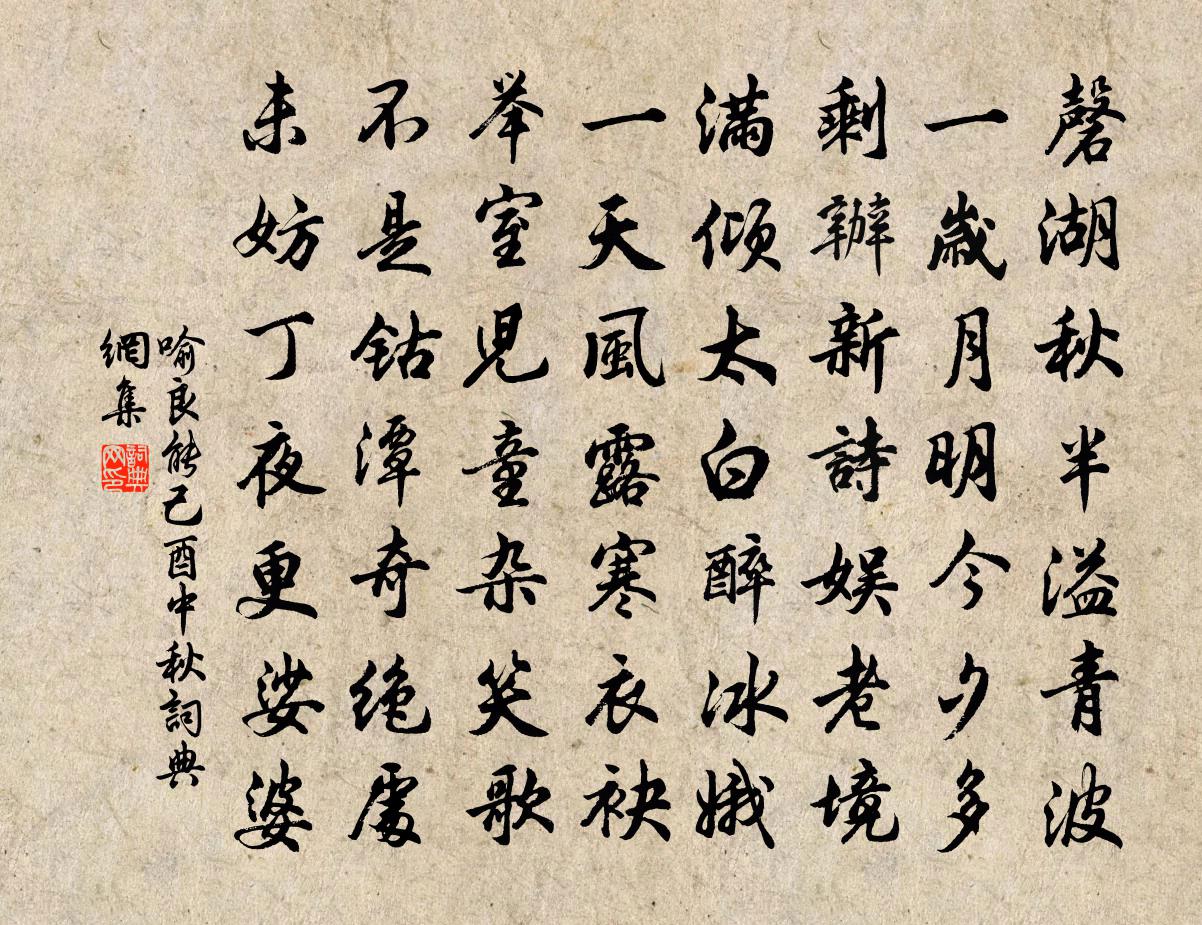 磬湖秋半溢青波
一歲月明今夕多
剩辦新詩娛老境
滿傾太白醉冰娥
一天風露寒衣袂
举室児童杂笑歌
不是钴潭奇绝處
未妨丁夜更娑婆
喻良能己酉中秋詞典
網集
詞典
网印